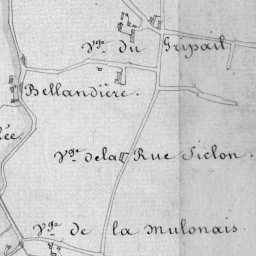 Vge du Gripail
Bellandière.
ée
Vge de la Rue Siclon.
Vge de la Mulonais.